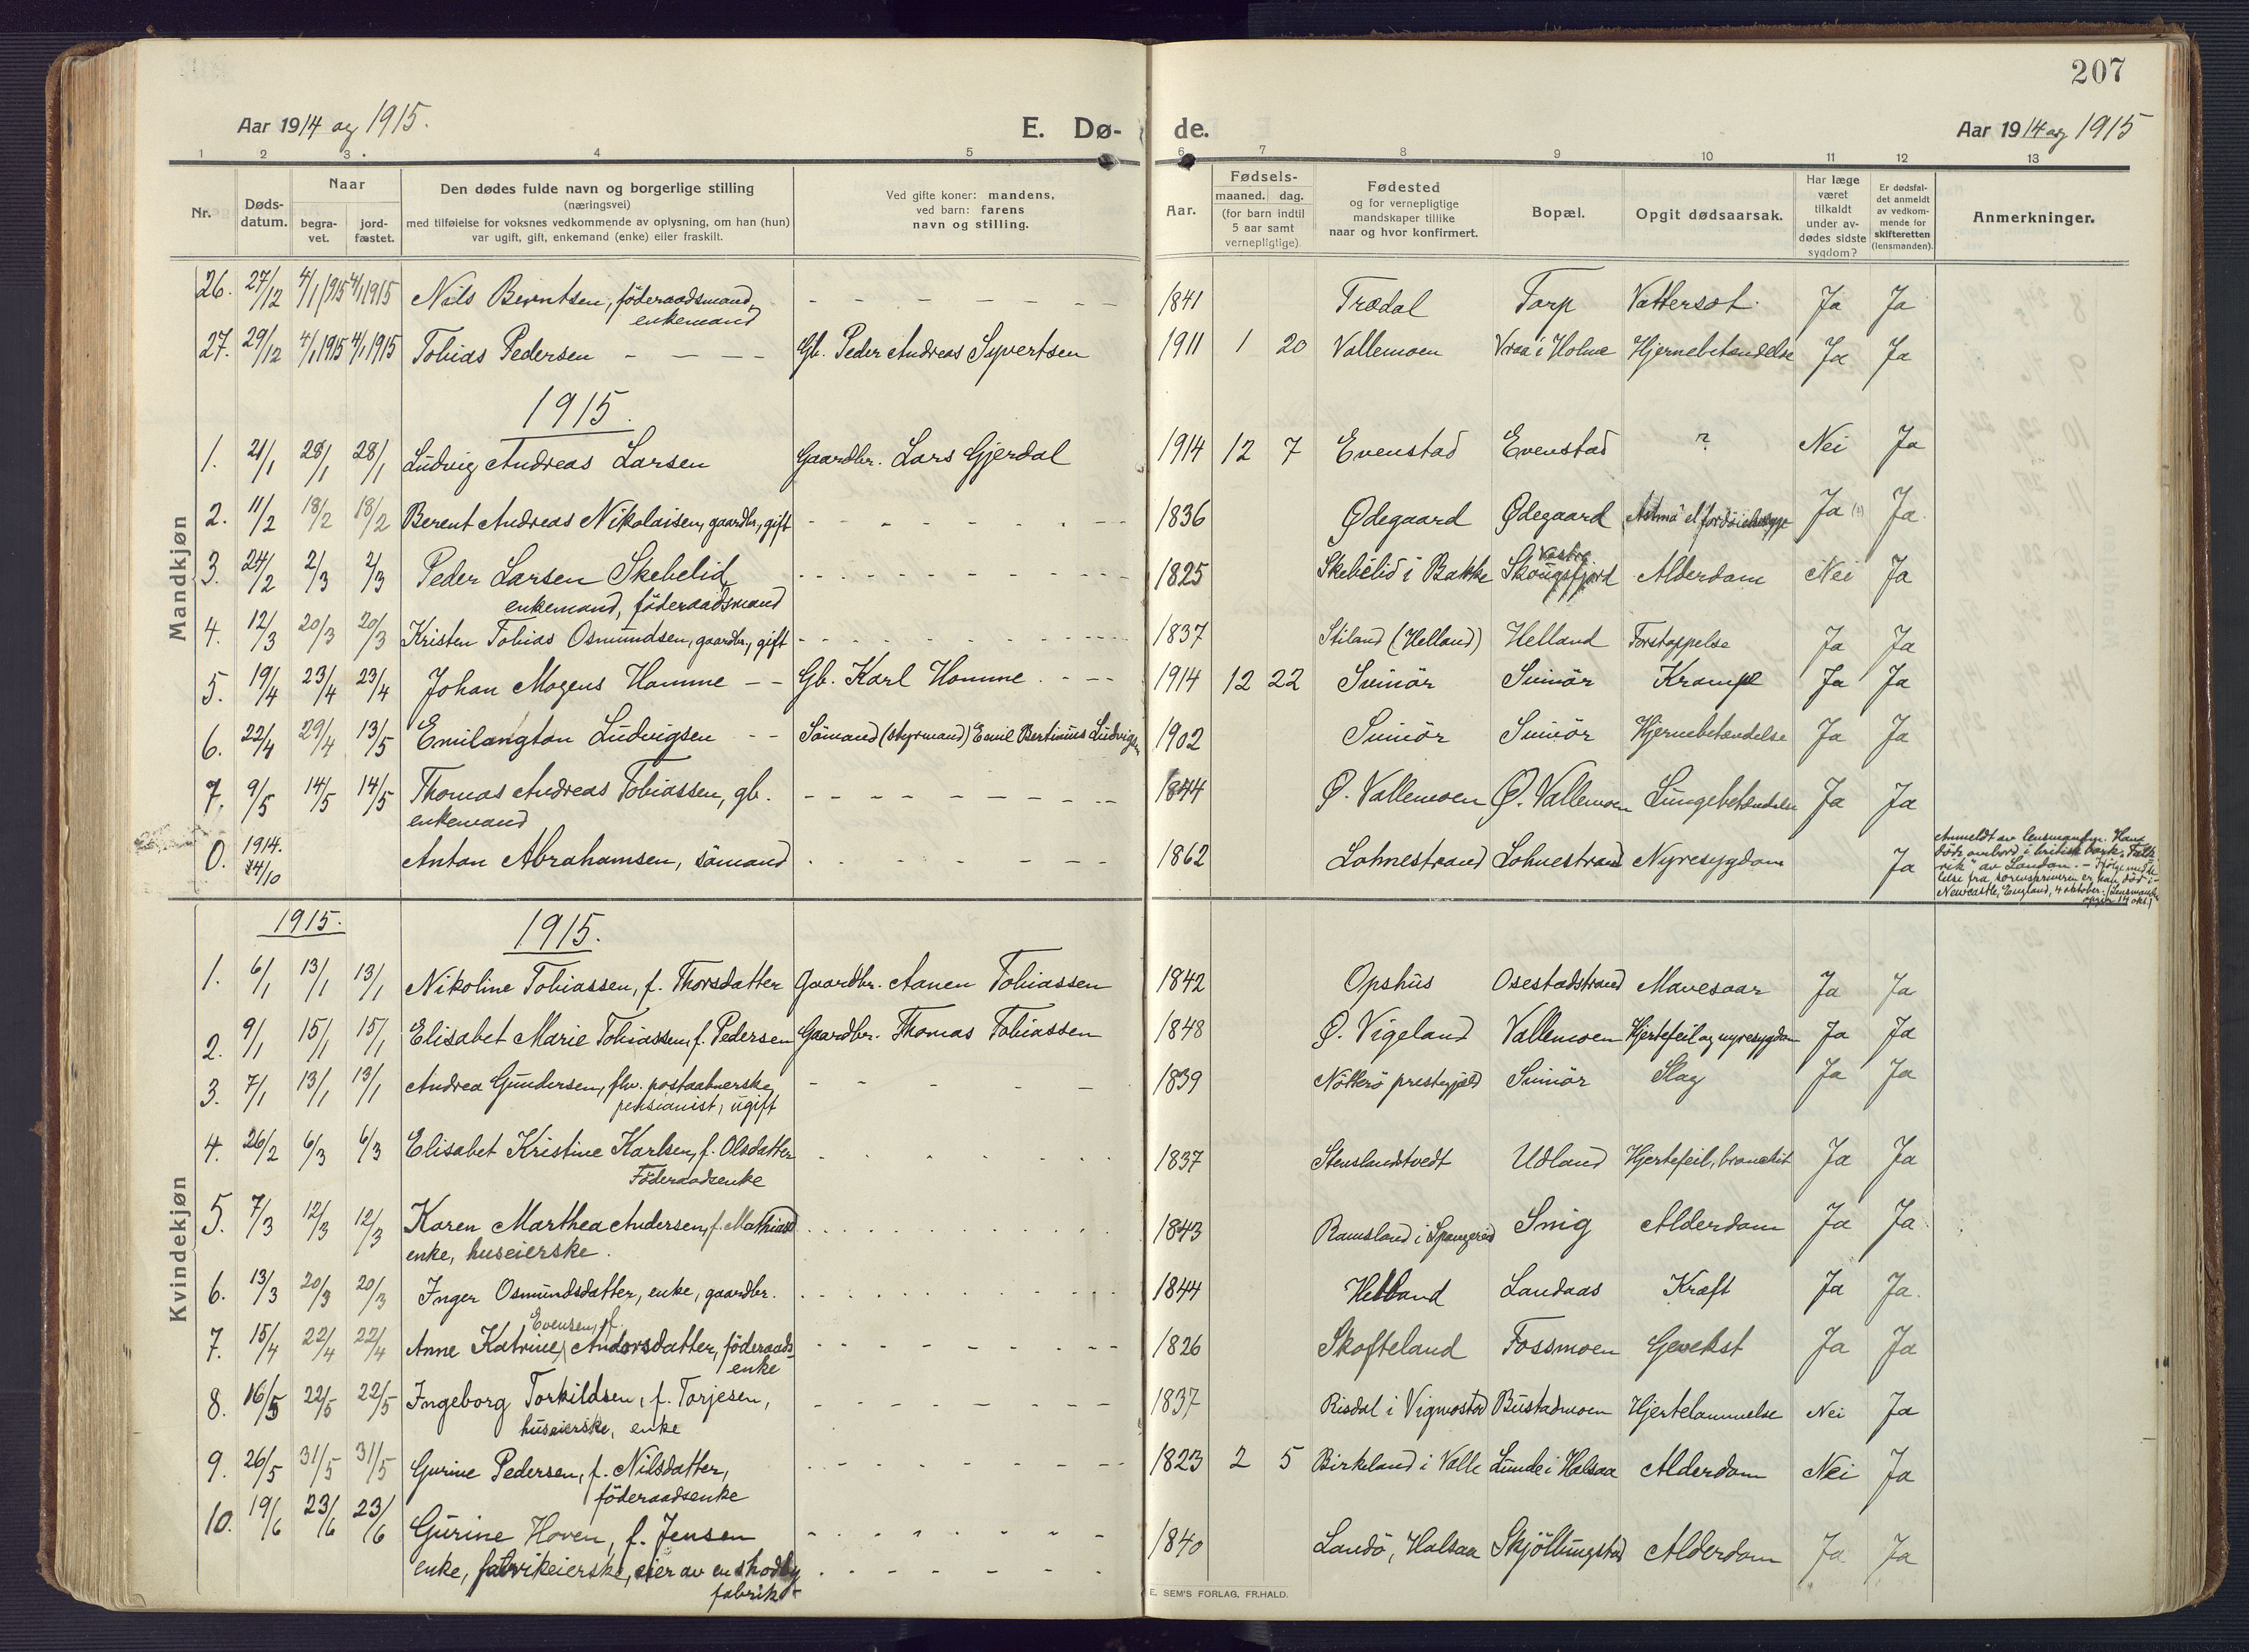 207
Aar 1914 og 1915.
E. Dø-
de.
Aar 1914 og 1915
1 2 3 4 5 6 7 8 9 10 11 12 13
Nr.
Døds-
datum.
Naar
begra-
vet.
jord-
fæstet.
Den dødes fulde navn og borgerlige stilling
(næringsvei)
med tilføielse for voksnes vedkommende av oplysning, om han (hun)
var ugift, gift, enkemand (enke) eller fraskilt.
Ved gifte koner: mandens,
ved barn: farens
navn og stilling.
Aar.
Fødsels-
maaned. dag.
(for barn indtil
5 aar samt
vernepligtige)
Fødested
og for vernepligtige
mandskaper tillike
naar og hvor konfirmert.
Bopæl.
Opgit dødsaarsak.
Har læge
været
tilkaldt
under av-
dødes sidste
sygdom?
Er dødsfal-
det anmeldt
av vedkom-
mende for
skifteretten
(lensmanden).
Anmerkninger.
Mandkjøn
26. 27/12 4/1 1915 4/1 1915 Nils Berntsen, föderaadsmand, 1841 Trædal Tarp Vattersot. Ja Ja
enkemand
27. 29/12 4/1 1915 4/1 1915 Tobias Pedersen Gb. Peder Andreas Syvertsen 1911 1 20 Vallemoen Vraa i Holme Hjernebetændelse Ja Ja
1915.
1. 21/1 28/1 28/1 Ludvig Andreas Larsen Gaardbr. Lars Gjerdal 1914 12 7 Evenstad Evenstad ? Nei Ja
2. 11/2 18/2 18/2 Berent Andreas Nikolaisen, gaardbr, gift 1836 Ødegaard Ødegaard Astma el. Ja Ja
3. 24/2 2/3 2/3 Peder Larsen Skebelid, 1825 Skebelid i Bakke Vestre Skougsfjord Alderdom Nei Ja
enkemand, föderaadsmand
4. 12/3 20/3 20/3 Kristen Tobias Osmundsen, gaardbr, gift 1837 Stiland (Helland) Helland Forstoppelse Ja Ja
5. 19/4 23/4 23/4 Johan Mogens Homme Gb. Karl Homme 1914 12 22 Svinör Svinör Krampe Ja Ja
6. 22/4 29/4 13/5 Emilangton Ludvigsen Sömand (styrmand) Emil Bertinius Ludvigsen 1902 Svinör Svinör Hjernebetændelse Ja Ja
7. 9/5 14/5 14/5 Thomas Andreas Tobiassen, gb. 1844 Ø. Vallemoen Ø. Vallemoen Lungebetændelse Ja Ja
enkemand
0. 1914. 14/10 Anton Abrahamsen, sömand 1862 Lohnestrand Lohnestrand Nyresygdom Ja
Anmeldt av lensmanden. Han
döde ombord i britisk bark "Falk
" av London. - Ifölge medde
lelse fra sorenskriveren er han död i
Newcastle, England, 4 oktober. (Lensmanden
opgir 14 okt.)
Kvindekjøn
1915. 1915.
1. 6/1 13/1 13/1 Nikoline Tobiassen, f. Thorsdatter Gaardbr. Aanen Tobiassen 1842 Opshus Osestadstrand Mavesaar Ja Ja
2. 9/1 15/1 15/1 Elisabet Marie Tobiassen, f. Pedersen Gaardbr. Thomas Tobiassen 1848 Ø. Vigeland Vallemoen Hjertefeil og nyresygdom Ja Ja
3. 7/1 13/1 13/1 Andrea Gundersen, fhv. postaabnerske, 1839 Nötterö prestegjeld Svinör Slag Ja Ja
pensionist, ugift
4. 26/2 6/3 6/3 Elisabet Kristine Karlsen, f. Olsdatter 1837 Stenslandstvedt Udland Hjertefeil, bronchit Ja Ja
Föderaadsenke
5. 7/3 12/3 12/3 Karen Marthea Andersen, f. Mathiasd 1843 Ramsland i Spangereid Snig Alderdom Ja Ja
enke, huseierske.
6. 13/3 20/3 20/3 Inger Osmundsdatter, enke, gaardbr. 1844 Helland Landaas Kræft Ja Ja.
Evensen, f.
7. 15/4 22/4 22/4 Anne Katrine Andorsdatter, föderaads- 1826 Skofteland Fossmoen Gevekst Ja Ja
enke
8. 16/5 22/5 22/5 Ingeborg Torkildsen, f. Torjesen, 1837 Risdal i Vigmostad Bustadmoen Hjertelammelse Nei Ja
huseierske, enke
9. 26/5 31/5 31/5 Gurine Pedersen, f. Nilsdatter, 1823 2 5 Birkeland i Valle Lunde i Halsaa Alderdom Nei Ja
föderaadsenke
10. 19/6 23/6 23/6 Gurine Hoven, f. Jensen 1840 Landö, Halsaa Skjöllingstad Alderdom Ja Ja
enke, fabrikeierske, eier av en shoddy
fabrik
E. SEM'S FORLAG, FR.HALD.